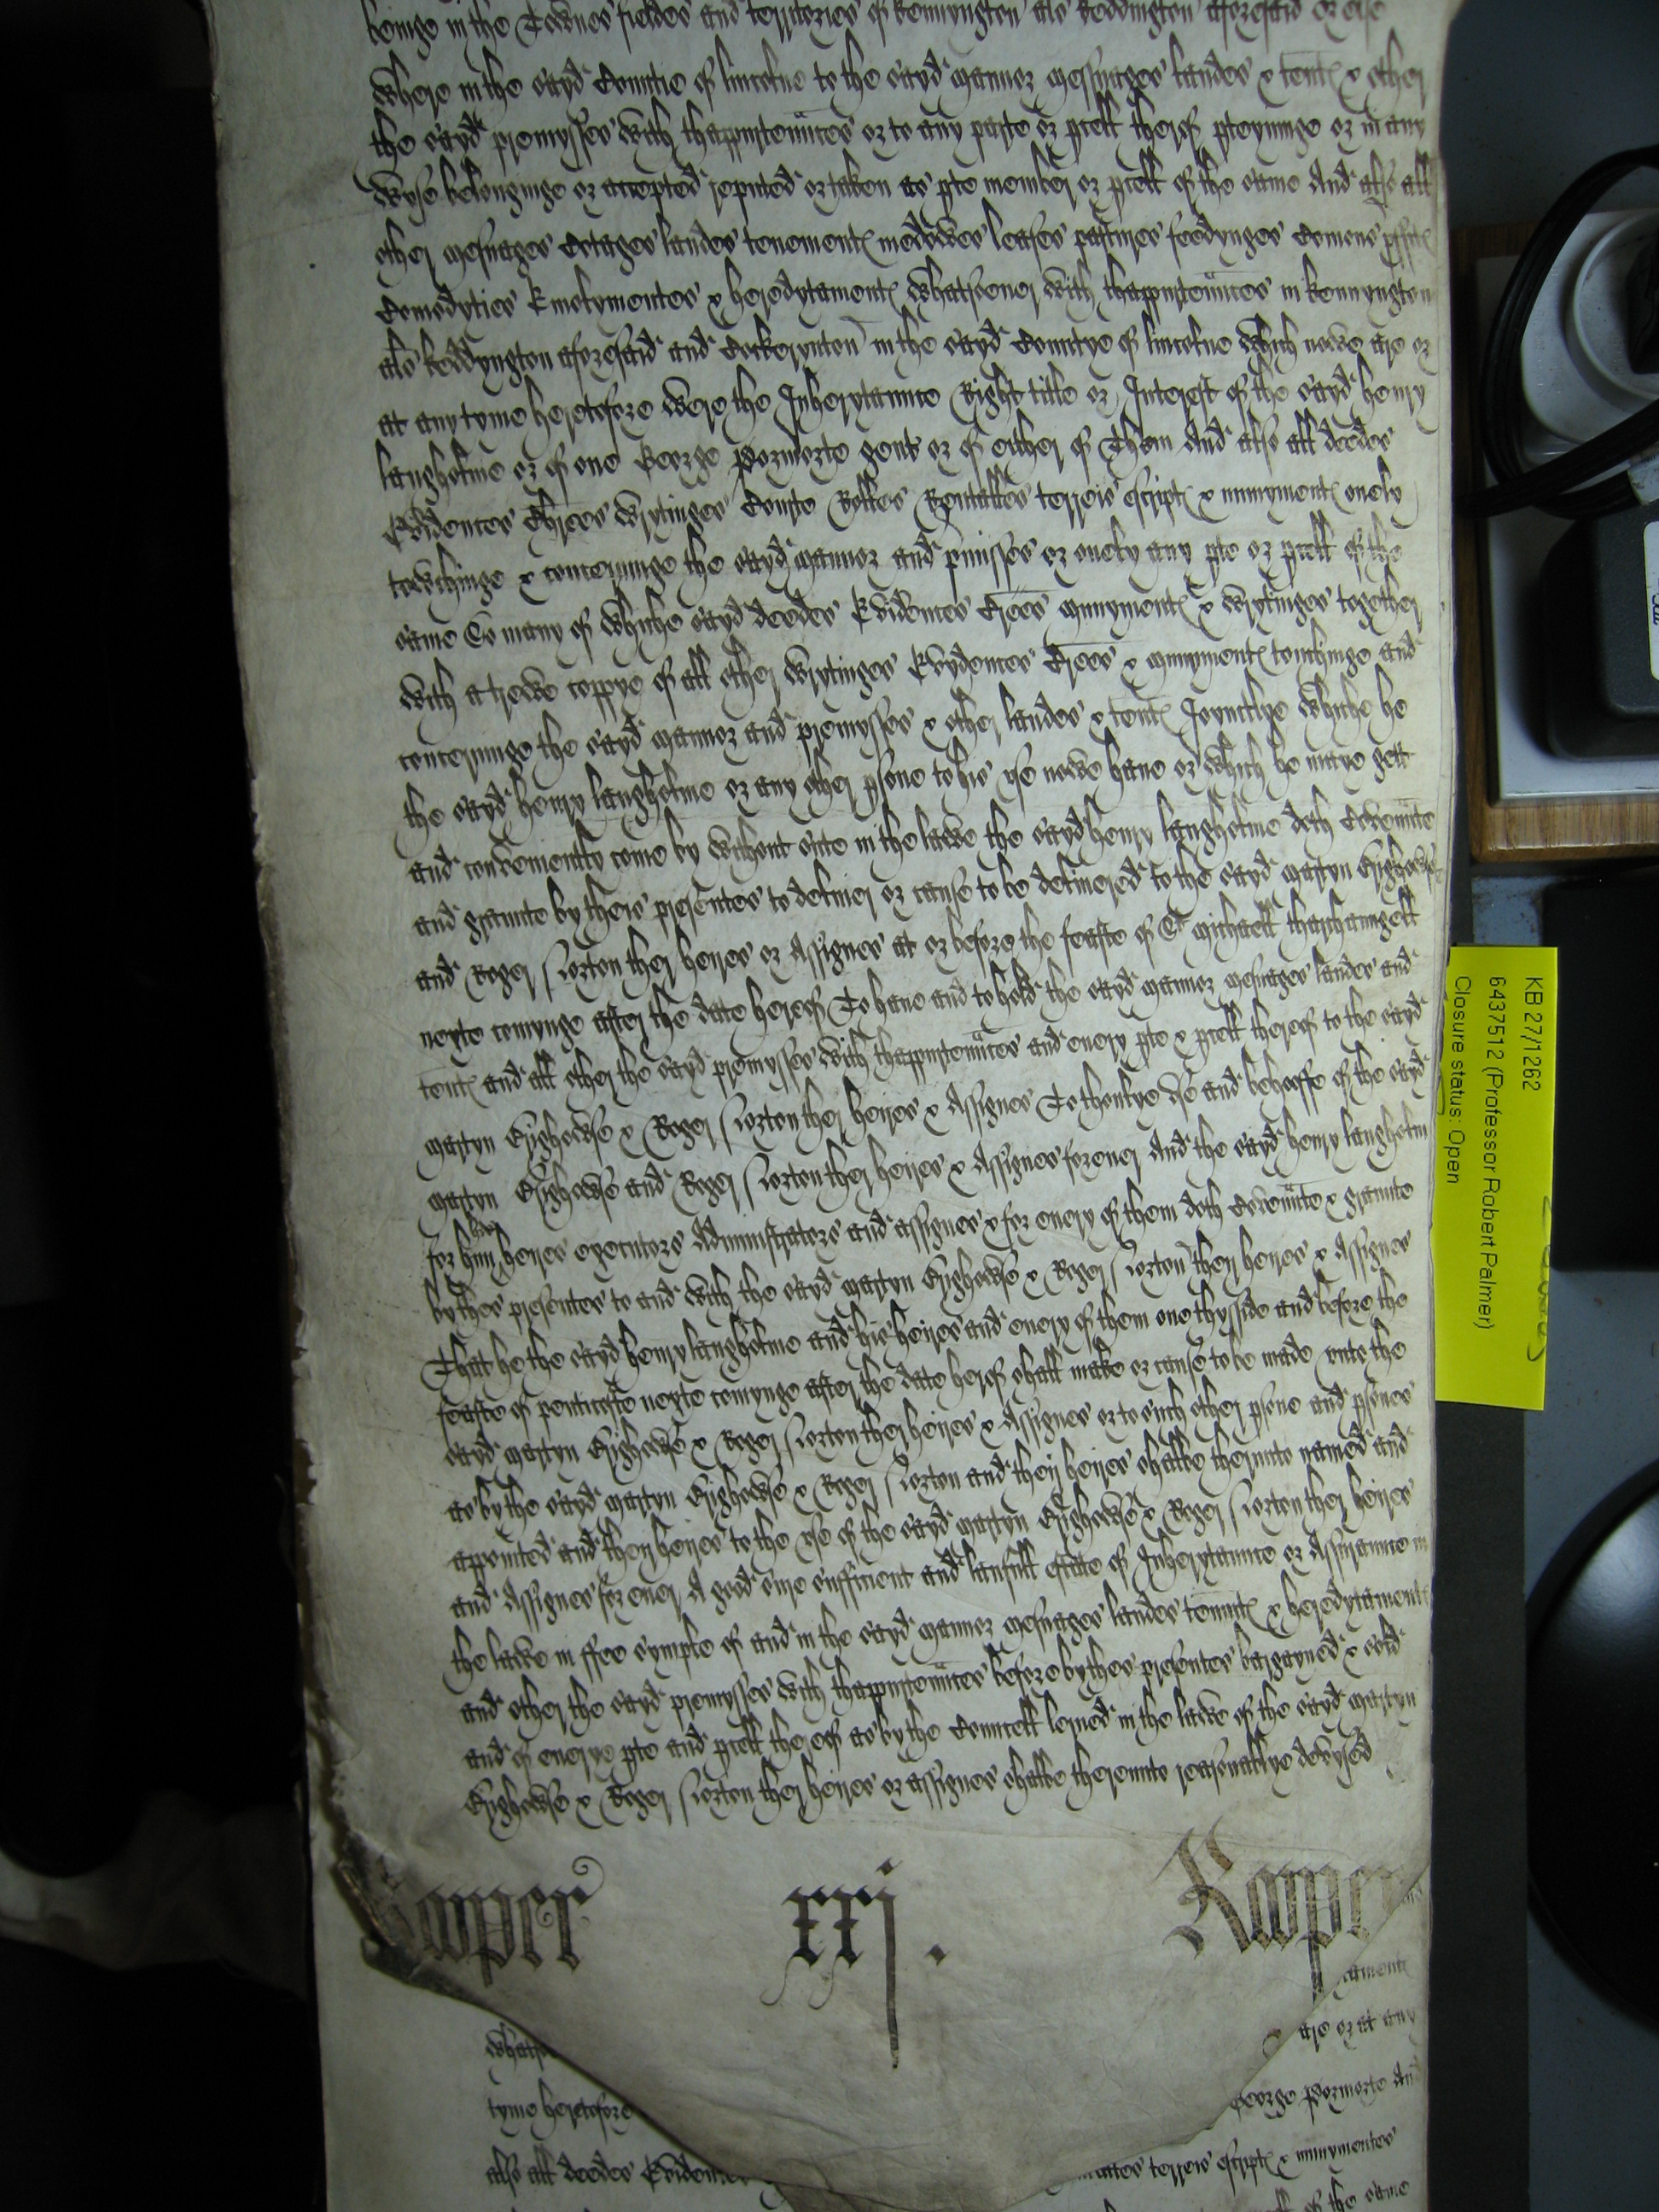 beinge in the Townes fieldes and territories of kennyngton als keddington aforesaid or else
where in the sayd Countie of lincolne to the sayd mannor messuages landes & tent & other
the sayd premysses with thappurtennces or to any parte or pcell therof pteyninge or in any
wyse belonginge or accepted reputed or taken as pte member or pcell of the same And also all
other mesuages Cotages landes tenement medowes leases pastures feedynges Comens pffitt
Comodyties Emolymentes & heredytament whatsoeuer with thappurtennces in kennyngton
als keddyngton aforesaid and Cockerynton in the sayd Countye of lincolne which nowe are or
at any tyme heretofore were the Inherytaunce Right title or Interest of the sayd henry
langholme or of one George gent or of either of Them And also all deedes
Evidences Chrees wrytinges Courte Rolles Rentalles terrors escript & munyment onely
towchinge & concerninge the sayd mannor and pmisses or onely any pte or pcell of the
same So many of whiche sayd deedes Evidences Chrees munyment & wrytinges together
with a trewe coppye of all other wrytinges Evydences Chrees & munyment touchinge and
concerninge the sayd mannor and premysses & other landes & tent Joyntlye whiche he
the sayd henry langholme or any other psone to his vse nowe haue or which he maye gett
and convenientlly come by without suite in the lawe the sayd henry langholme doth Covennte
and graunte by theis presentes to deliuer or cause to be deliuered to the sayd martyn
and Roger Sozten ther heires or Assignes at or before the feaste of St michaell tharchaungell
nexte comynge after the date herof To haue and to hold the sayd mannor mesuages landes and
tent and all other the sayd premysses with thappurtennces and euery pte & pcell therof to the sayd
martyn & Roger Sozten ther heires & Assignes To thonlye vse and behooffe of the sayd
martyn and Roger Sozten ther heires & Assignes for euer And the sayd henry langholm
for hym his heires executors Administrators and assignes & for euery of them doth Covennte & graunte
by thes presentes to and with the sayd martyn & Roger Sozten their heires & Assignes
That he the sayd henry langholme and his heires and euery of them one thysside and before the
feaste of penticoste nexte comynge after the date herof shall make or cause to be made vnto the
sayd martyn & Roger Sozten ther heires & Assignes or to such other psone and psones
as by the sayd martyn & Roger Sozten and their heires shalbe therunto named and
appointed and their heires to the vse of the sayd martyn & Roger Sozten ther heires
and Assignes for euer A good sure sufficient and laufull estate of Inherytaunce or Assuraunce in
the lawe in ffee symple of and in the sayd mannor mesuages landes tenmt & heredytament
and other the sayd premysses with thappurtennces before by thes presentes bargayned & sold
and of euerye pte and pcell therof as by the Councell lerned in the lawe of the sayd martyn
& Roger Sozten ther heires or assignes shalbe thereunto reasonablye devysed
Rooper xxj . Rooper
ament
whats
are or at any
tyme heretofore
George And
also all deedes Eviden
tales terrors escript & munymentes
of the same
KB 27/1262
6437512 (Professor Robert Palmer)
Closure status: Open